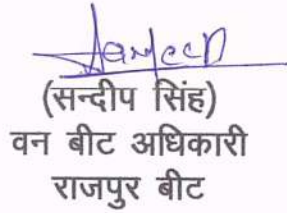 (सन्दीप सिंह)
वन बीट अधिकारी
राजपुर बीट